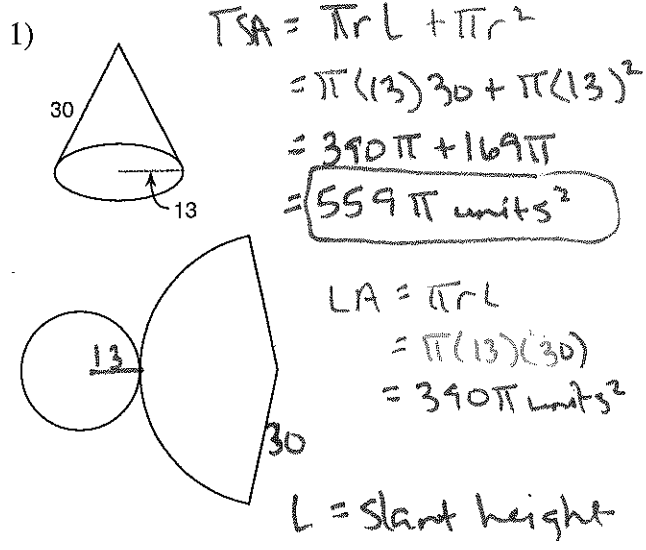 1)
TSA = πrL + πr²
= π(13)30 + π(13)²
= 390π + 169π
= 559π units²
30
13
LA = πrL
= π(13)(30)
= 390π units²
13
30
L = slant height